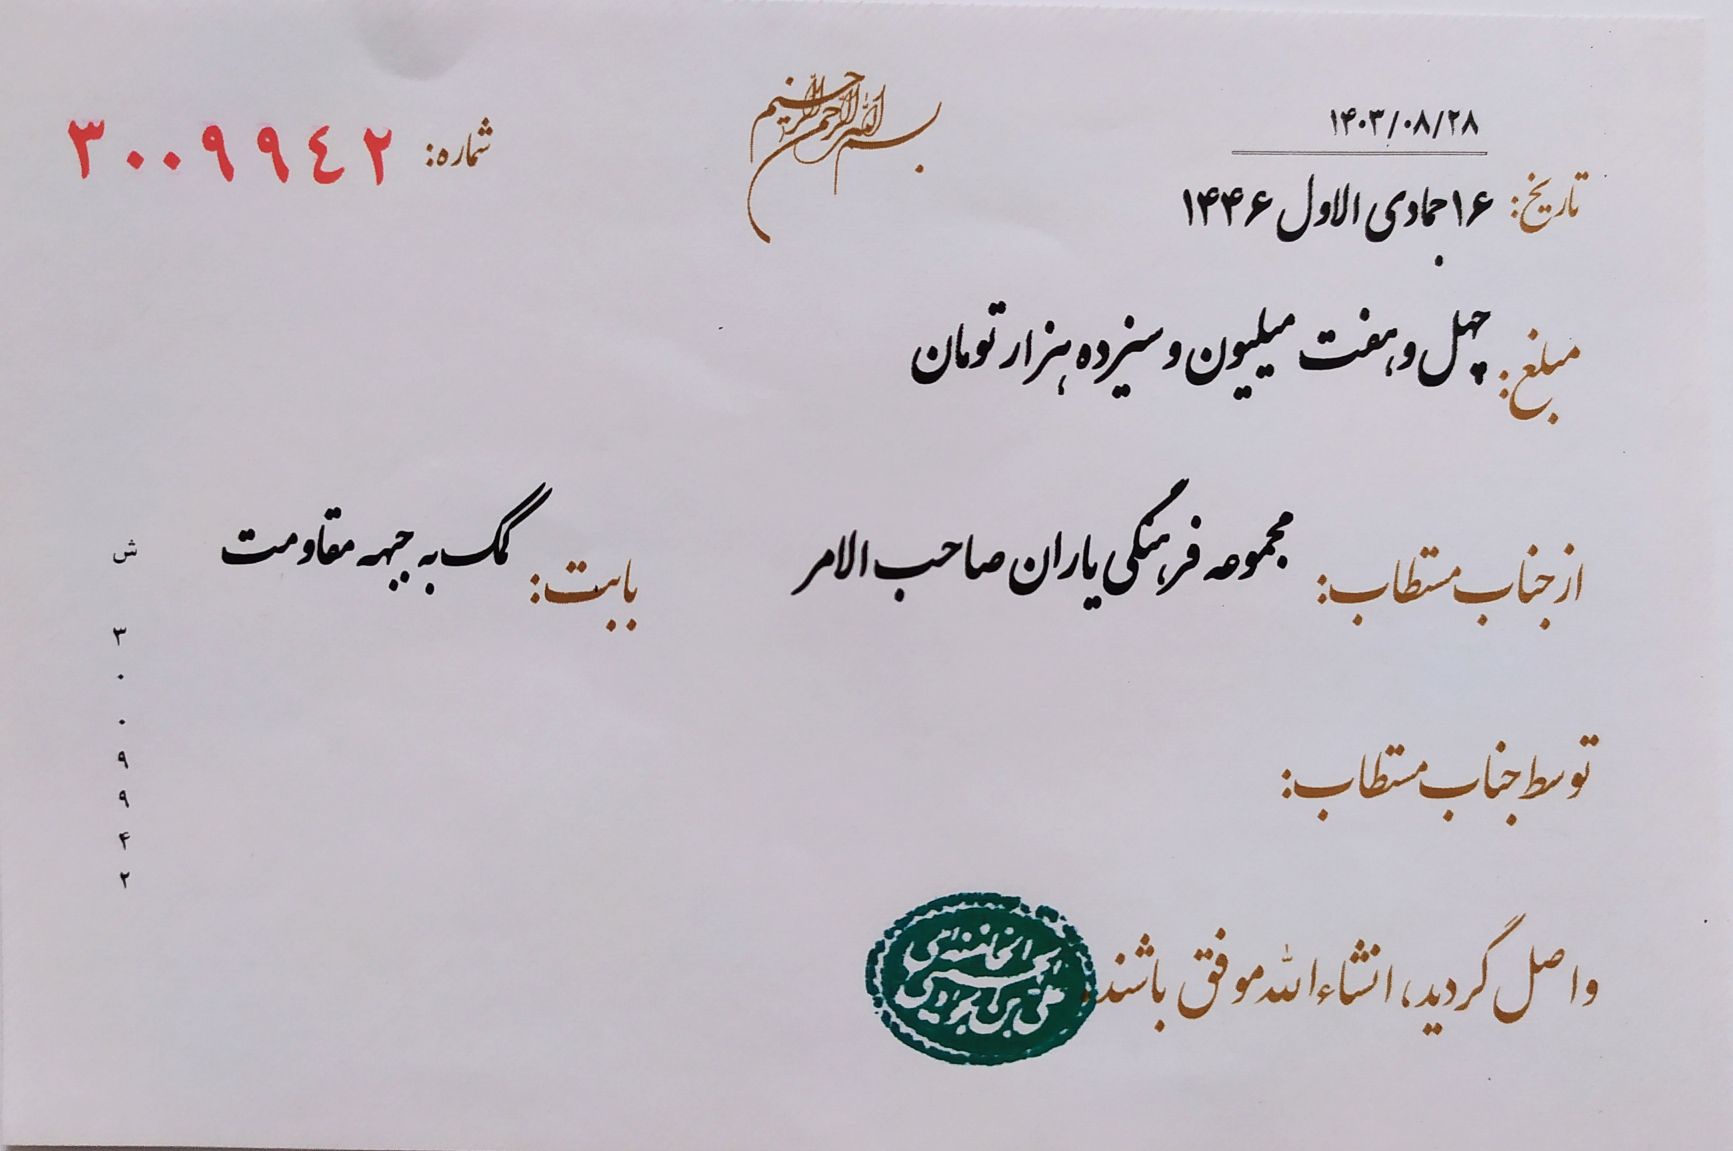 بسم الله الرحمن الرحیم
۱۴۰۳/۰۸/۲۸
تاریخ: ۱۶ جمادی الاول ۱۴۴۶
شماره: ۳۰۰۹۹۴۲
مبلغ: چهل و هفت میلیون و سیزده هزار تومان
از جناب مستطاب: مجموعه فرهنگی یاران صاحب الامر
بابت: کمک به جبهه مقاومت
توسط جناب مستطاب:
واصل گردید، انشاءالله موفق باشند.
علی بن جواد الحسینی الخامنه‌ای
ش
۳
۰
۰
۹
۹
۴
۲